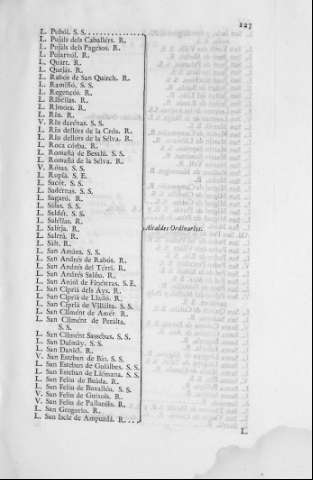 227
L. Puból. S. S.
L. Pujáls dels Caballérs. R.
L. Pujáls dels Pagésos. R.
L. Pujarnól. R.
L. Quárt. R.
L. Queĺas. R.
L. Rabós de San Quirch. R.
L. Ramiñó. S. S.
L. Regencós. R.
L. Ribéllas. R.
L. Riumórs. R.
L. Ríu. R.
V. Ríu S. S.
L. Ríu dellórs de la Créu. R.
L. Ríu dellórs de la Sélva. R.
L. Roca córba. R.
L. Romañá de Besalú. S. S.
L. Romañá de la Sélva. R.
V. Rósas. S. S.
L. Rupía. S. E.
L. Sacót. S. S.
L. Sadérnas. S. S.
L. Sagaró. R.
L. Sálas. S. S.
L. S. S.
L. R.
L. Salítja. R.
L. Salrrá. R.
L. Sált. R.
L. San Amánt. S. S.
L. San Andrés de Rabós. R.
L. San Andrés del Térri. R.
L. San Andrés Salóu. R.
L. San Aniól de Finéstras. S. E.
L. San Ciprià dels Áys. R.
L. San Ciprià de Lladó. R.
L. San Ciprià de Villálta. S. S.
L. San Climént de Amér. R.
L. San Climént de Perálta.
S. S.
L. San Climént Sasebas. S. S.
L. San Dalmáy. S. S.
L. San Daniél. R.
V. San Esteban de Bas. S. S.
L. San Esteban de Guiálbes. S. S.
L. San Esteban de Llémana. S. S.
L. San Felíu de Boáda. R.
L. San Felíu de Buxalléu. S. S.
V. San Felíu de Guixols. R.
V. San Felíu de Palláróls. R.
L. San Gregorio. R.
L. San Isclé de Ampurdá. R.
Alcaldes Ordinarios.
L.